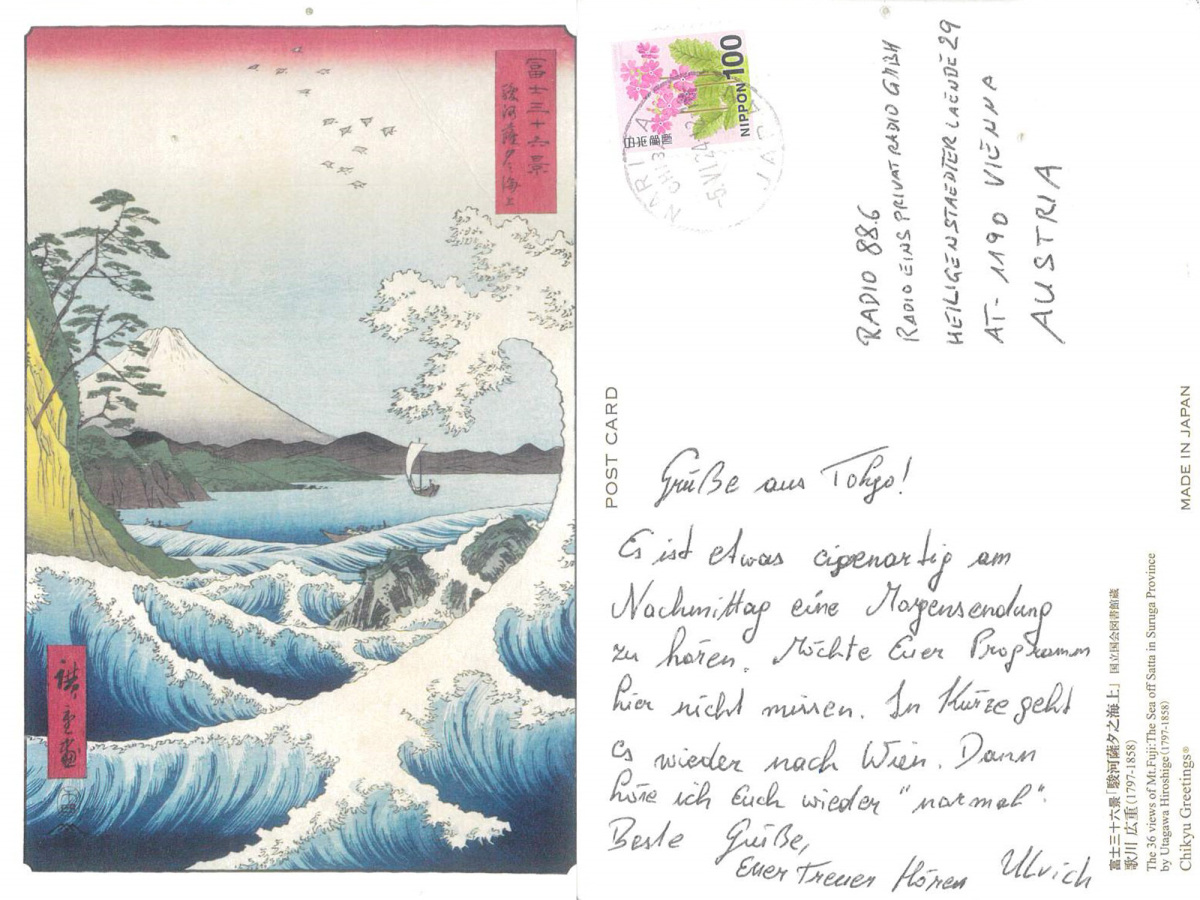 冨士三十六景
駿河薩タ之海上
廣重画
NIPPON 100
日本郵便
NARITA
CHIBA
-5.VI.24
JAPAN
RADIO 88.6
RADIO EINS PRIVATRADIO GMBH
HEILIGENSTAEDTER LAENDE 29
AT-1190 VIENNA
AUSTRIA
POST CARD
MADE IN JAPAN
Grüße aus Tokyo!
Es ist etwas eigenartig am
Nachmittag eine Morgensendung
zu hören. Möchte Euer Programm
hier nicht missen. In Kürze geht
es wieder nach Wien. Dann
höre ich Euch wieder "normal".
Beste Grüße,
Euer Treuer Hörer Ulrich
冨士三十六景「駿河薩タ之海上」 国立国会図書館蔵
歌川 広重(1797-1858)
The 36 views of Mt.Fuji:The Sea off Satta in Suruga Province
by Utagawa Hiroshige(1797-1858)
Chikyu Greetings®